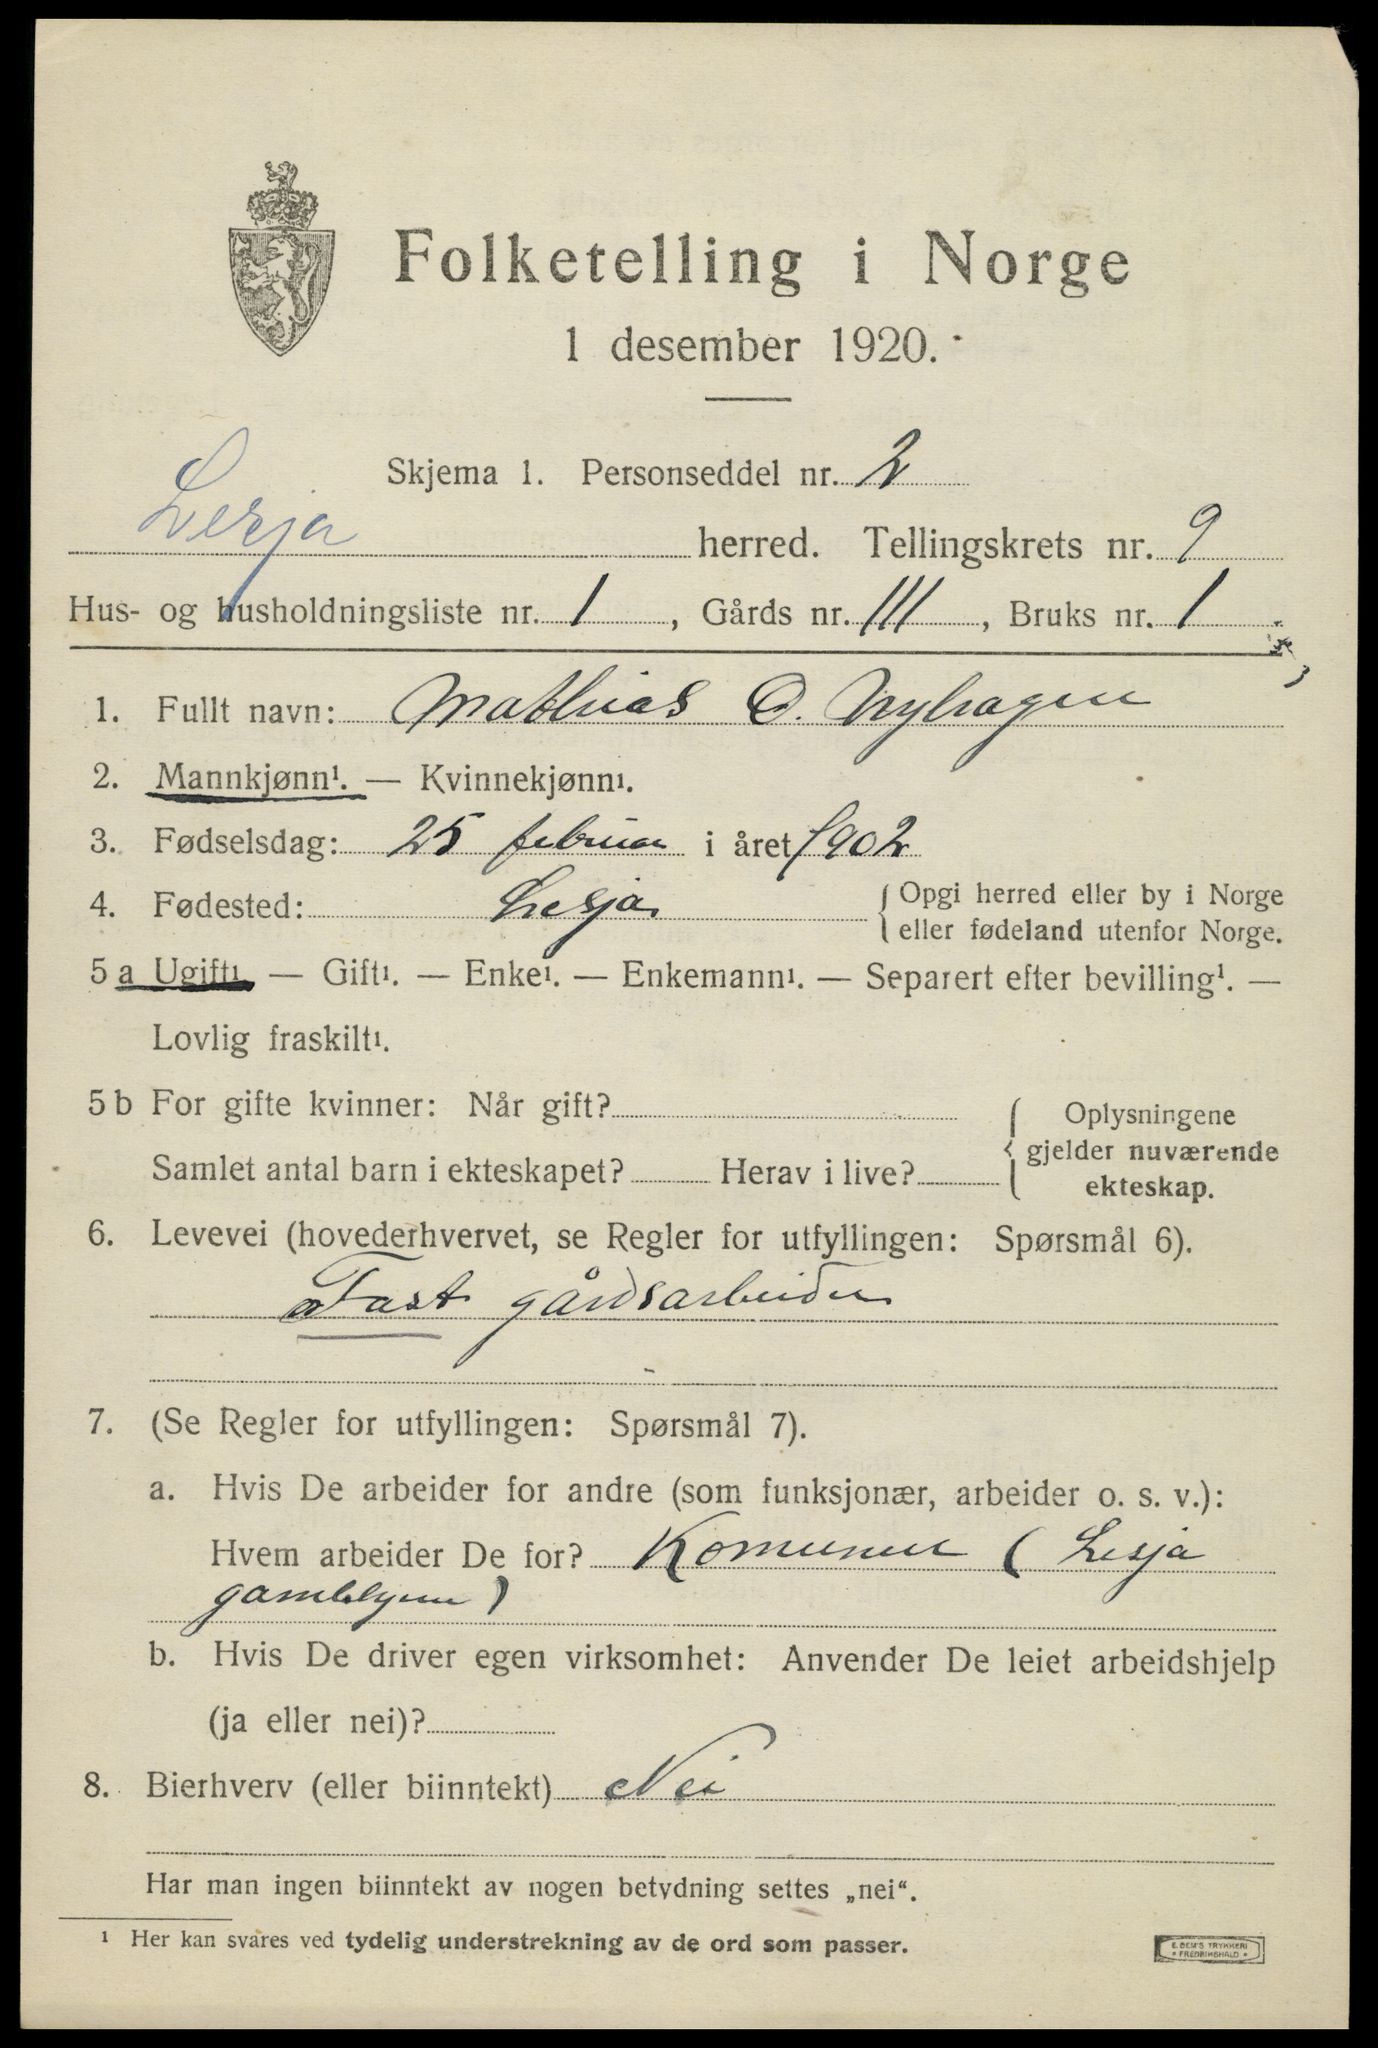 Folketelling i Norge
1 desember 1920.
Skjema 1. Personseddel nr. 2
Lesja herred. Tellingskrets nr. 9
Hus- og husholdningsliste nr. 1, Gårds nr. 111, Bruks nr. 1
1. Fullt navn: Mathias O. Nyhagen
2. Mannkjønn¹. — Kvinnekjønn¹.
3. Fødselsdag: 25 februar i året 1902
4. Fødested: Lesja { Opgi herred eller by i Norge
eller fødeland utenfor Norge.
5 a Ugift¹. — Gift¹. — Enke¹. — Enkemann¹. — Separert efter bevilling¹. —
Lovlig fraskilt¹.
5 b For gifte kvinner: Når gift? { Oplysningene
gjelder nuværende
Samlet antal barn i ekteskapet? Herav i live? ekteskap.
6. Levevei (hovederhvervet, se Regler for utfyllingen: Spørsmål 6).
Fast gårdsarbeider
7. (Se Regler for utfyllingen: Spørsmål 7).
a. Hvis De arbeider for andre (som funksjonær, arbeider o. s. v.):
Hvem arbeider De for? Komunen (Lesja
gamlehjem)
b. Hvis De driver egen virksomhet: Anvender De leiet arbeidshjelp
(ja eller nei)?
8. Bierhverv (eller biinntekt) Nei
Har man ingen biinntekt av nogen betydning settes „nei“.
¹ Her kan svares ved tydelig understrekning av de ord som passer.
E. SEM'S TRYKKERI
FREDRIKSHALD